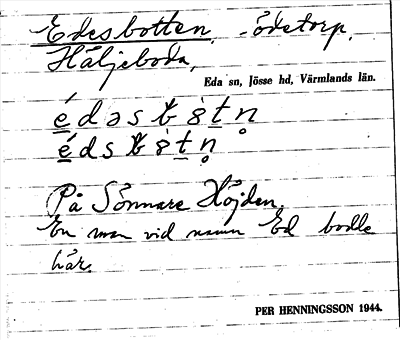 Edesbotten, -ödetorp,
Häljeboda,
Eda sn, Jösse hd, Värmlands län.
På Sönnare Höjden.
En man vid namn Ed bodde
här.
PER HENNINGSSON 1944.